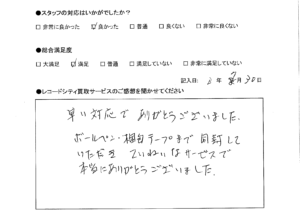 ●スタッフの対応はいかがでしたか？
□ 非常に良かった ☑ 良かった □ 普通 □ 良くない □ 非常に良くない
●総合満足度
□ 大満足 ☑ 満足 □ 普通 □ 満足していない □ 非常に満足していない
記入日： 年 月 30日
●レコードシティ買取サービスのご感想を聞かせてください
早い対応で ありがとうございました。
ボールペン・梱包テープまで 同封して
いただき ていねいなサービスで
本当にありがとうございました。